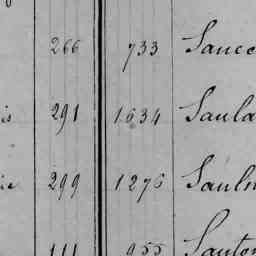 266 733 Saucc
is 291 1634 Saula
ie 299 1276 Sauln
111 955 Sauton